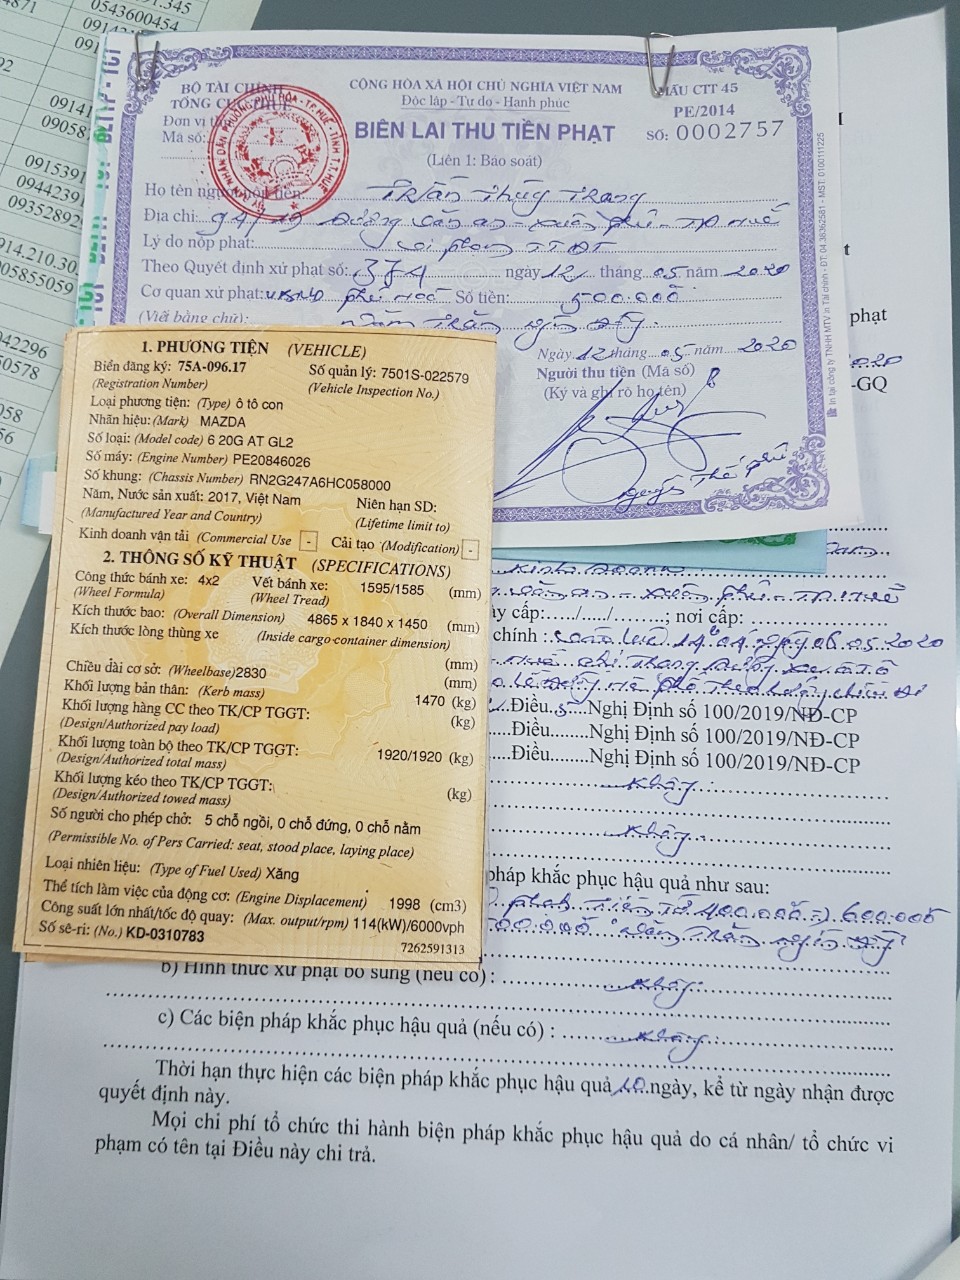 0543600454
BỘ TÀI CHÍNH
TỔNG CỤC THUẾ
Đơn vị th
Mã số:
CỘNG HÒA XÃ HỘI CHỦ NGHĨA VIỆT NAM
Độc lập - Tự do - Hạnh phúc
BIÊN LAI THU TIỀN PHẠT
(Liên 1: Báo soát)
MẪU CTT 45
PE/2014
SỐ: 0002757
Họ tên người nộp tiền: Trần Thùy Trang
Địa chỉ: 94/19 Dương Văn An - Xuân Phú - TP Huế
Lý do nộp phạt: vi phạm TTĐT
Theo Quyết định xử phạt số: 374 ngày 12 tháng 05 năm 2020
Cơ quan xử phạt: UBND Phú Hoà Số tiền: 500.000đ
(Viết bằng chữ): Năm trăm nghìn đồng.
Ngày 12 tháng 05 năm 2020
Người thu tiền (Mã số)
(Ký và ghi rõ họ tên)
In tại công ty TNHH MTV In Tài chính - ĐT: 04.38362581 - MST: 0100111225
1. PHƯƠNG TIỆN (VEHICLE)
Biển đăng ký: 75A-096.17 Số quản lý: 7501S-022579
(Registration Number) (Vehicle Inspection No.)
Loại phương tiện: (Type) ô tô con
Nhãn hiệu: (Mark) MAZDA
Số loại: (Model code) 6 20G AT GL2
Số máy: (Engine Number) PE20846026
Số khung: (Chassis Number) RN2G247A6HC058000
Năm, Nước sản xuất: 2017, Việt Nam Niên hạn SD:
(Manufactured Year and Country) (Lifetime limit to)
Kinh doanh vận tải (Commercial Use - Cải tạo (Modification) -
2. THÔNG SỐ KỸ THUẬT (SPECIFICATIONS)
Công thức bánh xe: 4x2 Vết bánh xe: 1595/1585 (mm)
(Wheel Formula) (Wheel Tread)
Kích thước bao: (Overall Dimension) 4865 x 1840 x 1450 (mm)
Kích thước lòng thùng xe (Inside cargo container dimension)
(mm)
Chiều dài cơ sở: (Wheelbase)2830 (mm)
Khối lượng bản thân: (Kerb mass) 1470 (kg)
Khối lượng hàng CC theo TK/CP TGGT: (kg)
(Design/Authorized pay load)
Khối lượng toàn bộ theo TK/CP TGGT: 1920/1920 (kg)
(Design/Authorized total mass)
Khối lượng kéo theo TK/CP TGGT: (kg)
(Design/Authorized towed mass)
Số người cho phép chở: 5 chỗ ngồi, 0 chỗ đứng, 0 chỗ nằm
(Permissible No. of Pers Carried: seat, stood place, laying place)
Loại nhiên liệu: (Type of Fuel Used) Xăng
Thể tích làm việc của động cơ: (Engine Displacement) 1998 (cm3)
Công suất lớn nhất/tốc độ quay: (Max. output/rpm) 114(kW)/6000vph
Số sê-ri: (No.) KD-0310783
7262591313
phạt
2020
-GQ
Kinh doanh
ày cấp:...../..../........; nơi cấp:
chính :
Điều 5 Nghị Định số 100/2019/NĐ-CP
Điều Nghị Định số 100/2019/NĐ-CP
Điều Nghị Định số 100/2019/NĐ-CP
Không
Không
pháp khắc phục hậu quả như sau:
phạt tiền từ 400.000đ -> 600.000đ
năm trăm nghìn đồng
b) Hình thức xử phạt bổ sung (nếu có) : Không
c) Các biện pháp khắc phục hậu quả (nếu có) : Không
Thời hạn thực hiện các biện pháp khắc phục hậu quả 10 ngày, kể từ ngày nhận được
quyết định này.
Mọi chi phí tổ chức thi hành biện pháp khắc phục hậu quả do cá nhân/ tổ chức vi
phạm có tên tại Điều này chi trả.